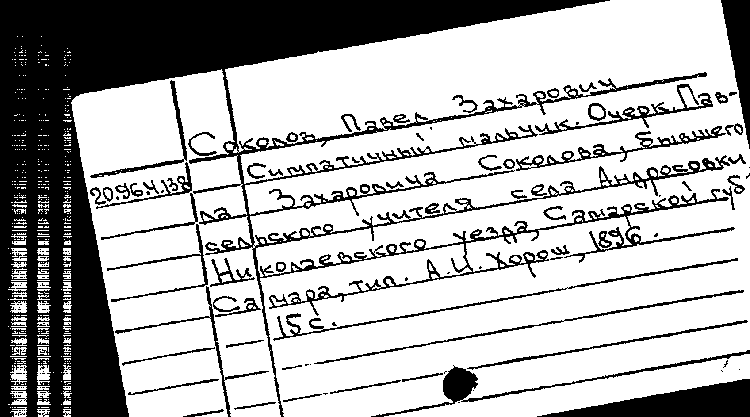 Соколов, Павел Захарович
Симпатичный мальчик. Очерк. Пав-
20.96.4.138
ла Захаровича Соколова, бывшего
сельского учителя села Андросовки
Николаевского уезда, Самарской губ.
Самара, тип. А.И. Хорош, 1896.
15 с.